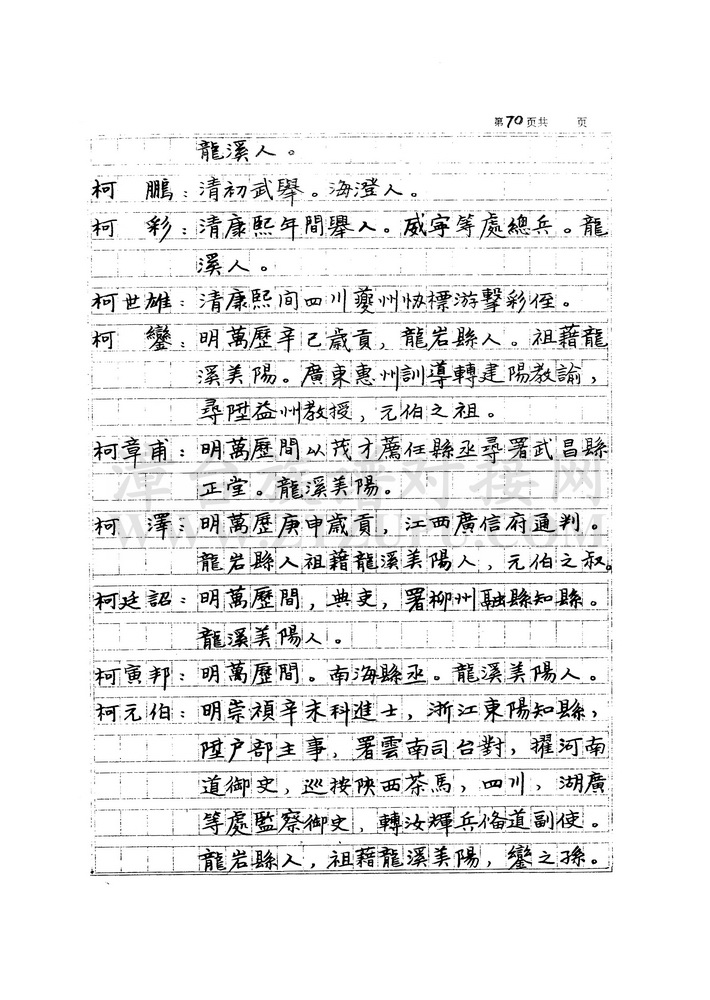 第70页共 页
龍溪人。
柯 鵬：清初武舉。海澄人。
柯 彩：清康熙年間舉人。威宇等處總兵。龍
溪人。
柯世雄：清康熙间四川夔州协標游擊彩侄。
柯 鑾：明萬歷辛己歲貢，龍岩縣人。祖藉龍
溪美陽。廣東惠州訓導轉建陽教諭，
尋陞益州教授，元伯之祖。
柯章甫：明萬歷間以茂才薦任縣丞尋署武昌縣
正堂。龍溪美陽。
柯 澤：明萬歷庚申歲貢，江西廣信府通判。
龍岩縣人祖藉龍溪美陽人，元伯之叔。
柯廷詔：明萬歷間，典吏，署柳州融縣知縣。
龍溪美陽人。
柯寅邦：明萬歷間。南海縣丞。龍溪美陽人。
柯元伯：明崇禎辛未科進士，浙江東陽知縣，
陞户部主事，署雲南司台對，擢河南
道御史，巡按陕西茶馬，四川，湖廣
等處監察御史，轉汝輝兵俻道副使。
龍岩縣人，祖藉龍溪美陽，鑾之孫。
漳台族譜对接网
WWW.ZTZUPU.COM